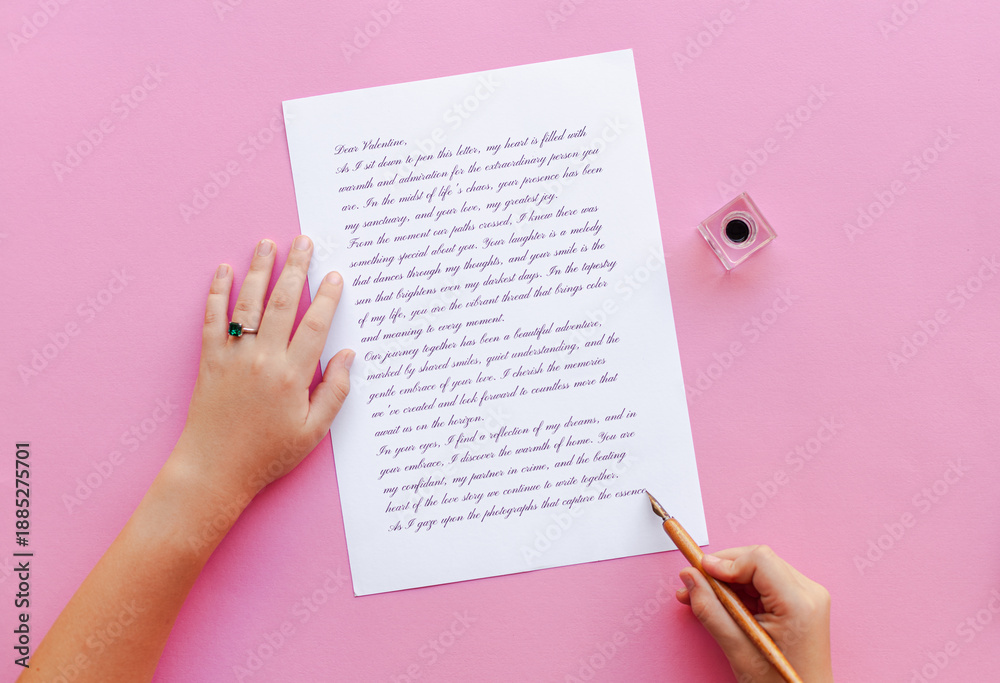 Dear Valentine,
As I sit down to pen this letter, my heart is filled with
warmth and admiration for the extraordinary person you
are. In the midst of life's chaos, your presence has been
my sanctuary, and your love, my greatest joy.
From the moment our paths crossed, I knew there was
something special about you. Your laughter is a melody
that dances through my thoughts, and your smile is the
sun that brightens even my darkest days. In the tapestry
of my life, you are the vibrant thread that brings color
and meaning to every moment.
Our journey together has been a beautiful adventure,
marked by shared smiles, quiet understanding, and the
gentle embrace of your love. I cherish the memories
we've created and look forward to countless more that
await us on the horizon.
In your eyes, I find a reflection of my dreams, and in
your embrace, I discover the warmth of home. You are
my confidant, my partner in crime, and the beating
heart of the love story we continue to write together.
As I gaze upon the photographs that capture the essence
Adobe Stock | #1885275701